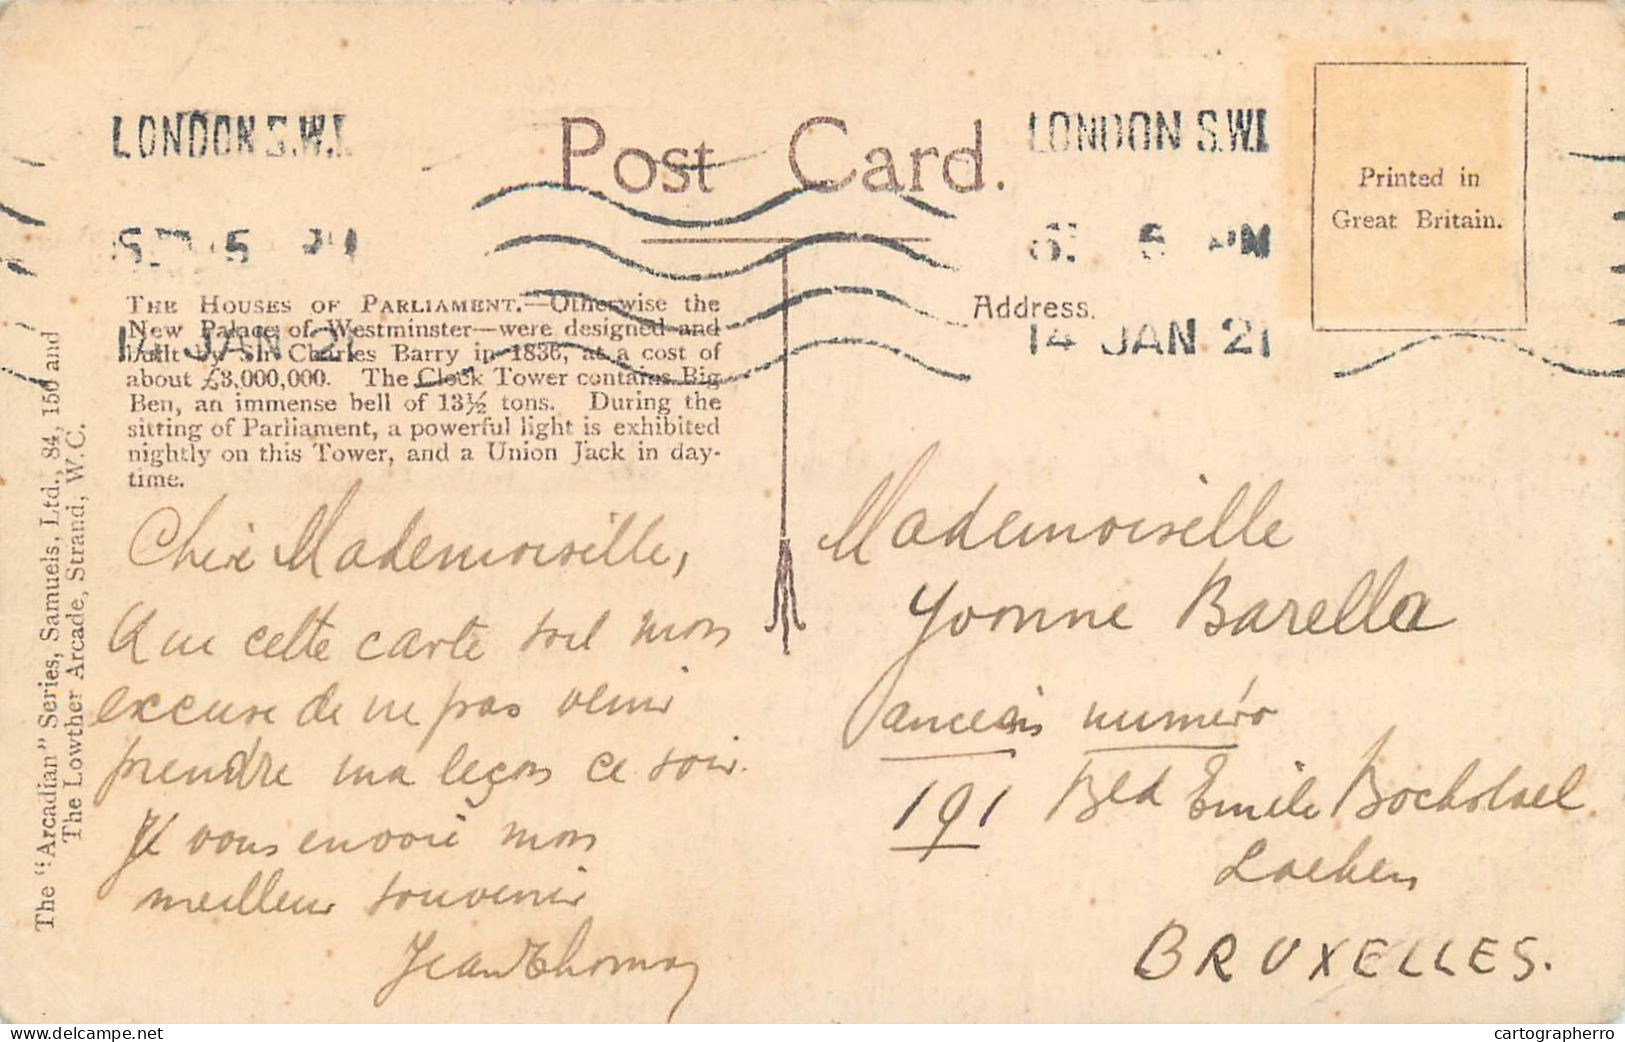 LONDON S.W.1
5 PM
14 JAN 21
Post Card.
LONDON S.W.1
5 PM
14 JAN 21
Printed in
Great Britain.
Address.
THE HOUSES OF PARLIAMENT.—Otherwise the
New Palace of Westminster—were designed and
built by Sir Charles Barry in 1836, at a cost of
about £3,000,000. The Clock Tower contains Big
Ben, an immense bell of 13½ tons. During the
sitting of Parliament, a powerful light is exhibited
nightly on this Tower, and a Union Jack in day-
time.
The "Arcadian" Series, Samuels, Ltd., 84, 150 and
The Lowther Arcade, Strand, W.C.
Chère Mademoiselle,
Que cette carte soit mon
excuse de ne pas venir
prendre ma leçon ce soir.
Je vous envoie mon
meilleur souvenir
Jean Thomas
Mademoiselle
Yonne Barella
ancien numéro
191 Bld Emile Bockstael
Laeken
BRUXELLES.
cartographerro